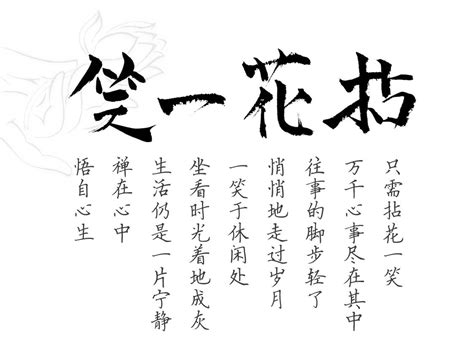 拈花一笑
只需拈花一笑
万千心事尽在其中
往事的脚步轻了
悄悄地走过岁月
一笑于休闲处
坐看时光着地成灰
生活仍是一片宁静
禅在心中
悟自心生